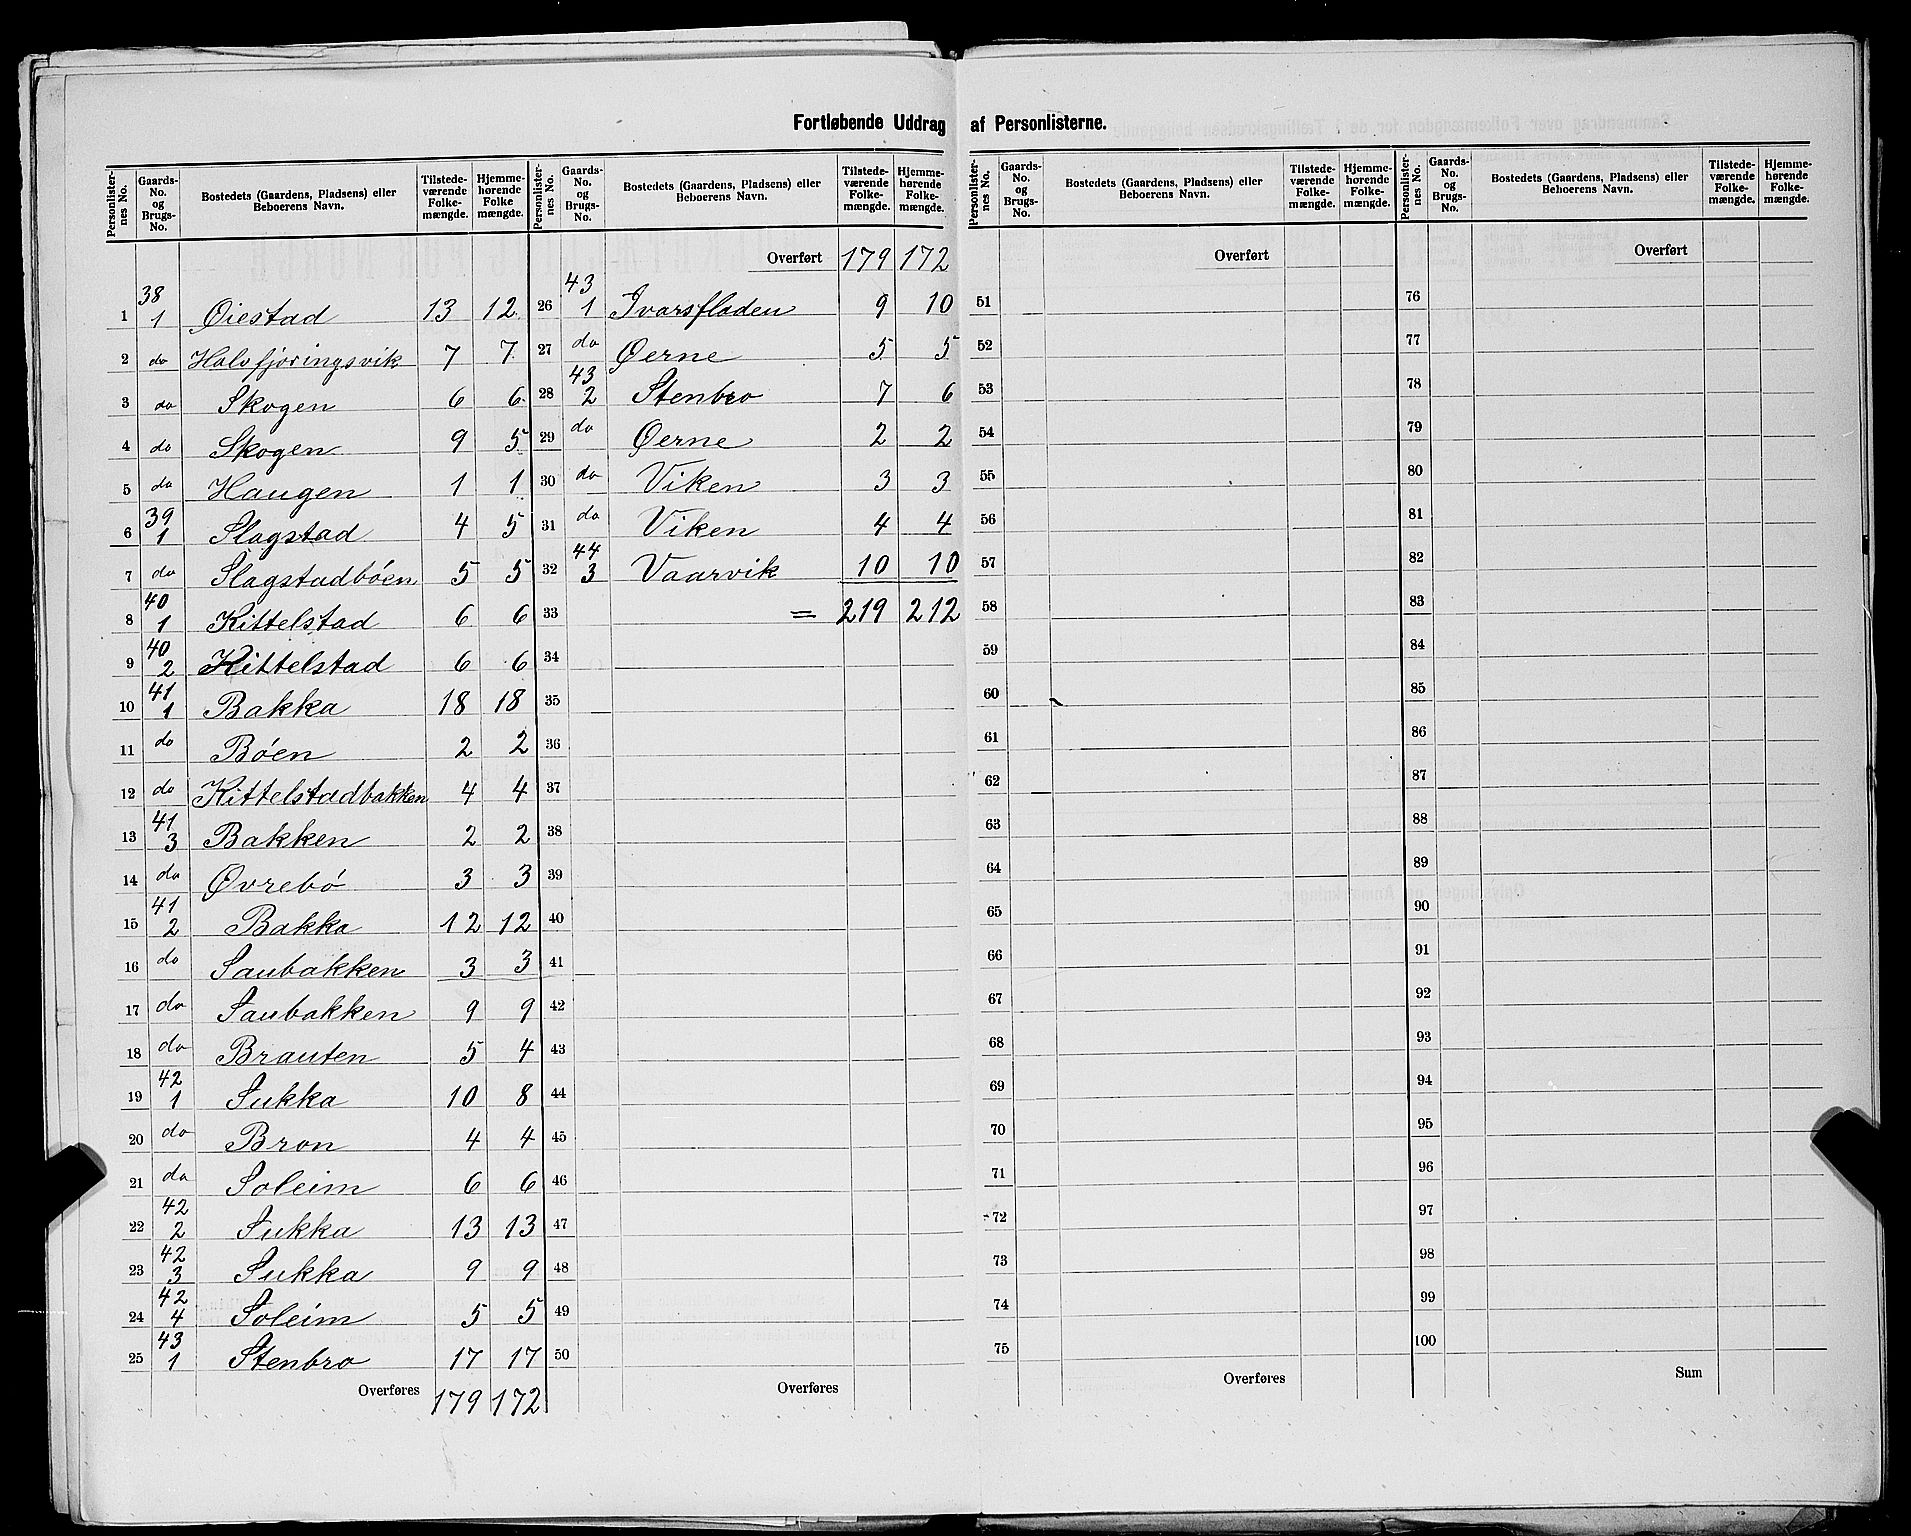 Fortløbende Uddrag af Personlisterne.
Personlister-nes No. | Gaards-No. og Brugs-No. | Bostedets (Gaardens, Pladsens) eller Beboerens Navn. | Tilstede-værende Folke-mængde. | Hjemme-hørende Folke mængde.
1 | 38 1 | Øiestad | 13 | 12
2 | do | Halvfjoringsvik | 7 | 7
3 | do | Skogen | 6 | 6
4 | do | Skogen | 9 | 5
5 | do | Haugen | 1 | 1
6 | 39 1 | Slagstad | 4 | 5
7 | do | Slagstadbøen | 5 | 5
8 | 40 1 | Kittelstad | 6 | 6
9 | 40 2 | Kittelstad | 6 | 6
10 | 41 1 | Bakka | 18 | 18
11 | do | Bøen | 2 | 2
12 | do | Kittelstadbakken | 4 | 4
13 | 41 3 | Bakken | 2 | 2
14 | do | Øvrebø | 3 | 3
15 | 41 2 | Bakka | 12 | 12
16 | do | Saubakken | 3 | 3
17 | do | Saubakken | 9 | 9
18 | do | Brauten | 5 | 4
19 | 42 1 | Sukka | 10 | 8
20 | do | Bron | 4 | 4
21 | do | Soleim | 6 | 6
22 | 42 2 | Sukka | 13 | 13
23 | 42 3 | Sukka | 9 | 9
24 | 42 4 | Soleim | 5 | 5
25 | 43 1 | Stenbro | 17 | 17
Overføres 179 172
Personlister-nes No. | Gaards-No. og Brugs-No. | Bostedets (Gaardens, Pladsens) eller Beboerens Navn. | Tilstede-værende Folke-mængde. | Hjemme-hørende Folke-mængde.
Overført 179 172
26 | 43 1 | Ivarsfladen | 9 | 10
27 | do | Øerne | 5 | 5
28 | 43 2 | Stenbro | 7 | 6
29 | do | Øerne | 2 | 2
30 | do | Viken | 3 | 3
31 | do | Viken | 4 | 4
32 | 44 3 | Vaarvik | 10 | 10
33 | = | 219 | 212
34
35
36
37
38
39
40
41
42
43
44
45
46
47
48
49
50
Overføres
Personlister-nes No. | Gaards-No. og Brugs-No. | Bostedets (Gaardens, Pladsens) eller Beboerens Navn. | Tilstede-værende Folke-mængde. | Hjemme-hørende Folke-mængde.
Overført
51
52
53
54
55
56
57
58
59
60
61
62
63
64
65
66
67
68
69
70
71
72
73
74
75
Overføres
Personlister-nes No. | Gaards-No. og Brugs-No. | Bostedets (Gaardens, Pladsens) eller Beboerens Navn. | Tilstede-værende Folke-mængde. | Hjemme-hørende Folke-mængde.
Overført
76
77
78
79
80
81
82
83
84
85
86
87
88
89
90
91
92
93
94
95
96
97
98
99
100
Sum